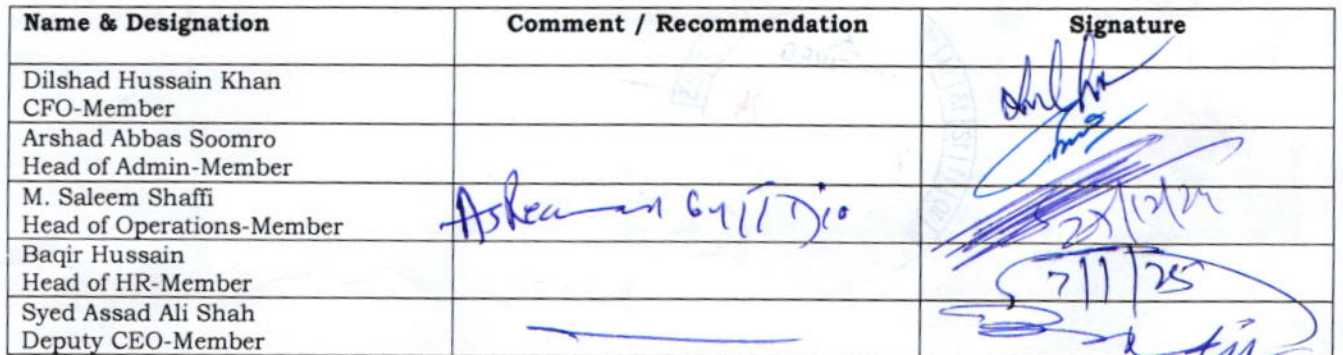 Name & Designation Comment / Recommendation Signature
Dilshad Hussain Khan
CFO-Member
Arshad Abbas Soomro
Head of Admin-Member
M. Saleem Shaffi
Head of Operations-Member
27/12/24
Baqir Hussain
Head of HR-Member
7/1/25
Syed Assad Ali Shah
Deputy CEO-Member